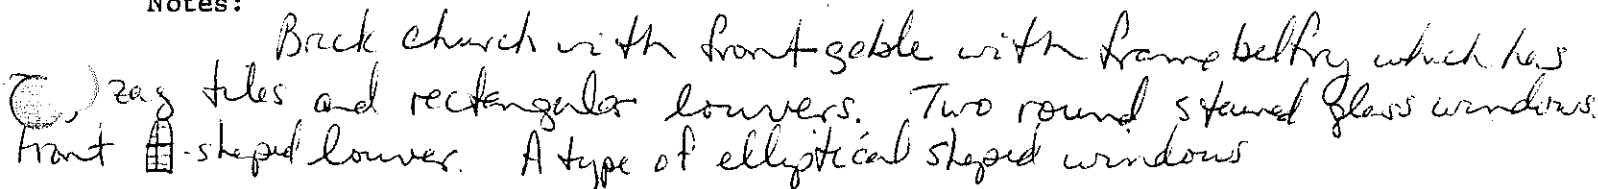 Notes:
Brick church with front gable with frame belfry which has
zag tiles and rectangular louvers. Two round stained glass windows.
front -shaped louver. A type of elliptical shaped windows